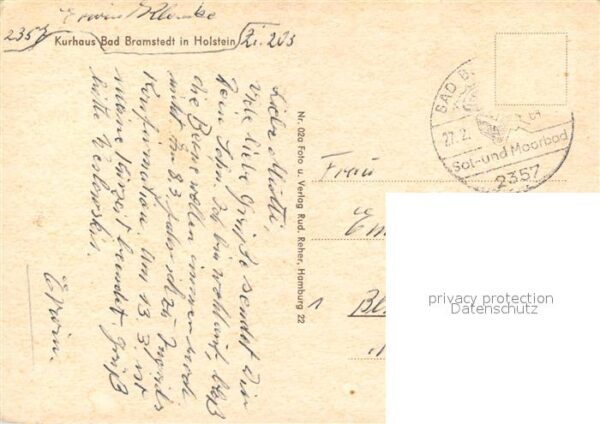 Erwin Klemke
2357 Kurhaus Bad Bramstedt in Holstein Zi. 203
Liebe Mutti,
Viele liebe Grüße sendet Dir
Dein Sohn. Ich bin wohlauf, bloß
die Beine wollen immer noch
nicht. Am 8.3. fahre ich zu
Konfirmation. Am 13.3. ist
meine Kurzeit beendet. Gruß
bitte
Erwin.
Nr. 02a Foto u. Verlag Rud. Reher, Hamburg 22
BAD B
27.2.
Sol- und Moorbad
2357
Frau
1
privacy protection
Datenschutz